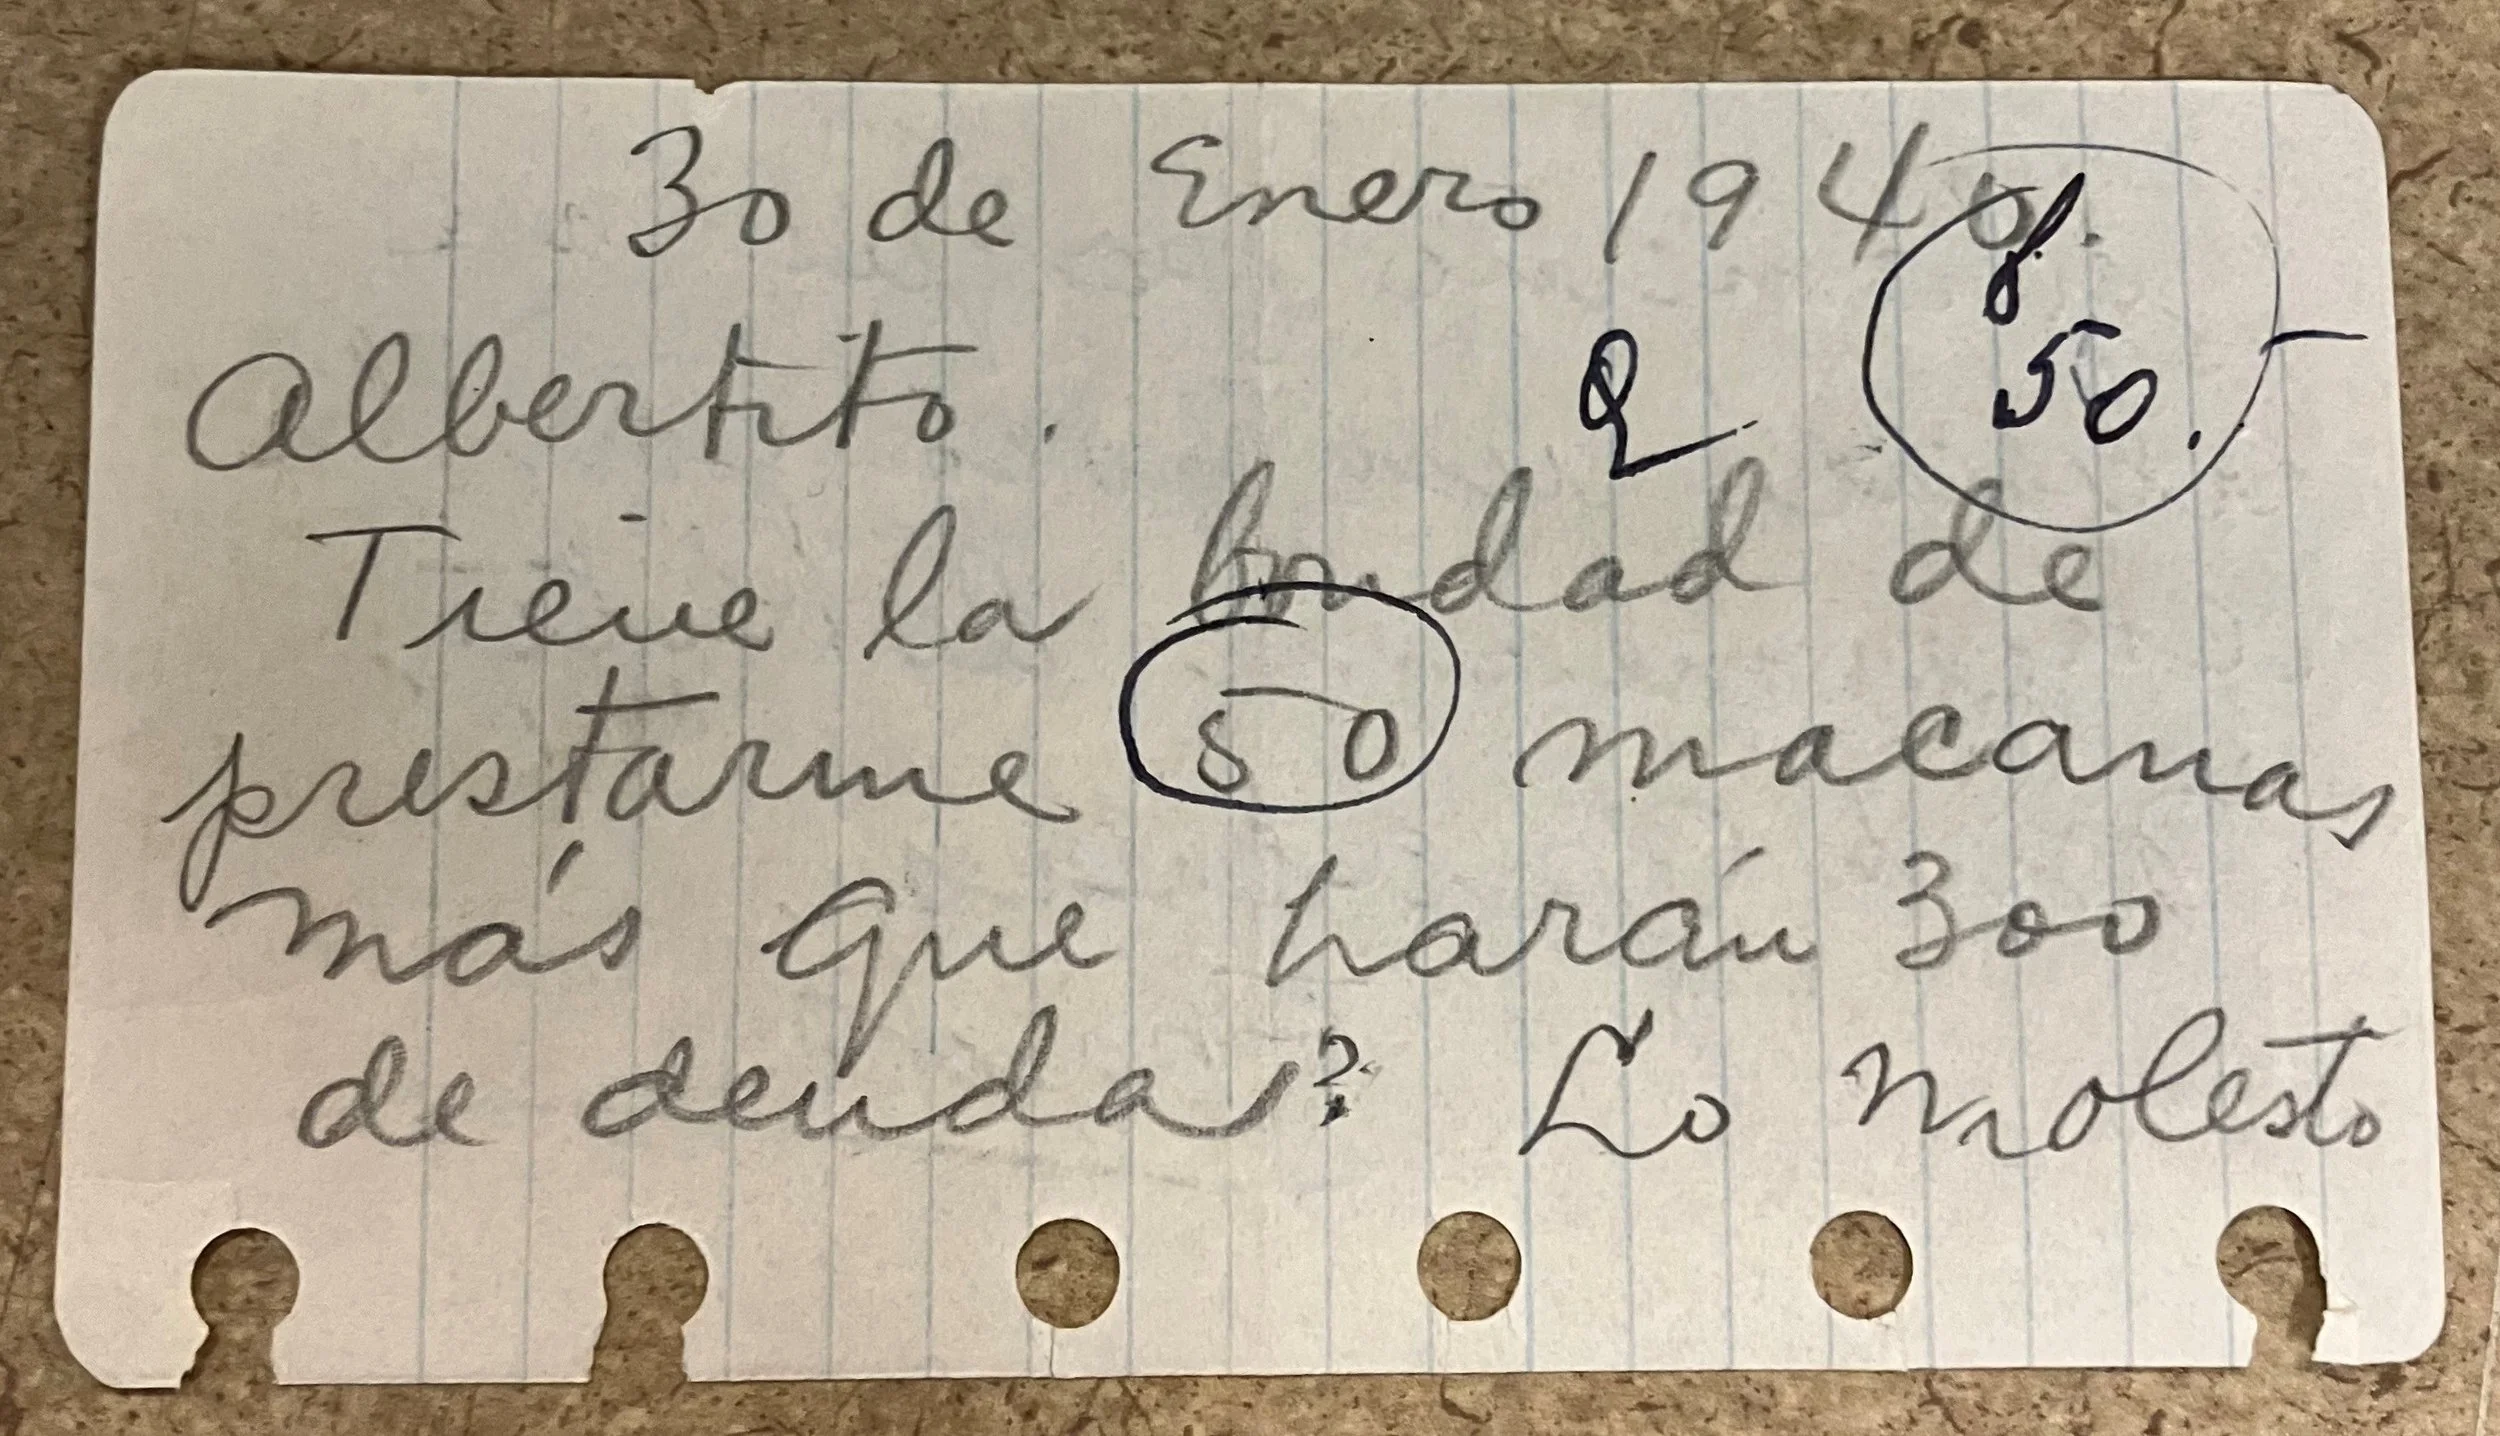 30 de Enero 194
Albertito.
Q
50.
Tiene la bondad de
prestarme 50 macanas
más que harán 300
de deuda? Lo molesto